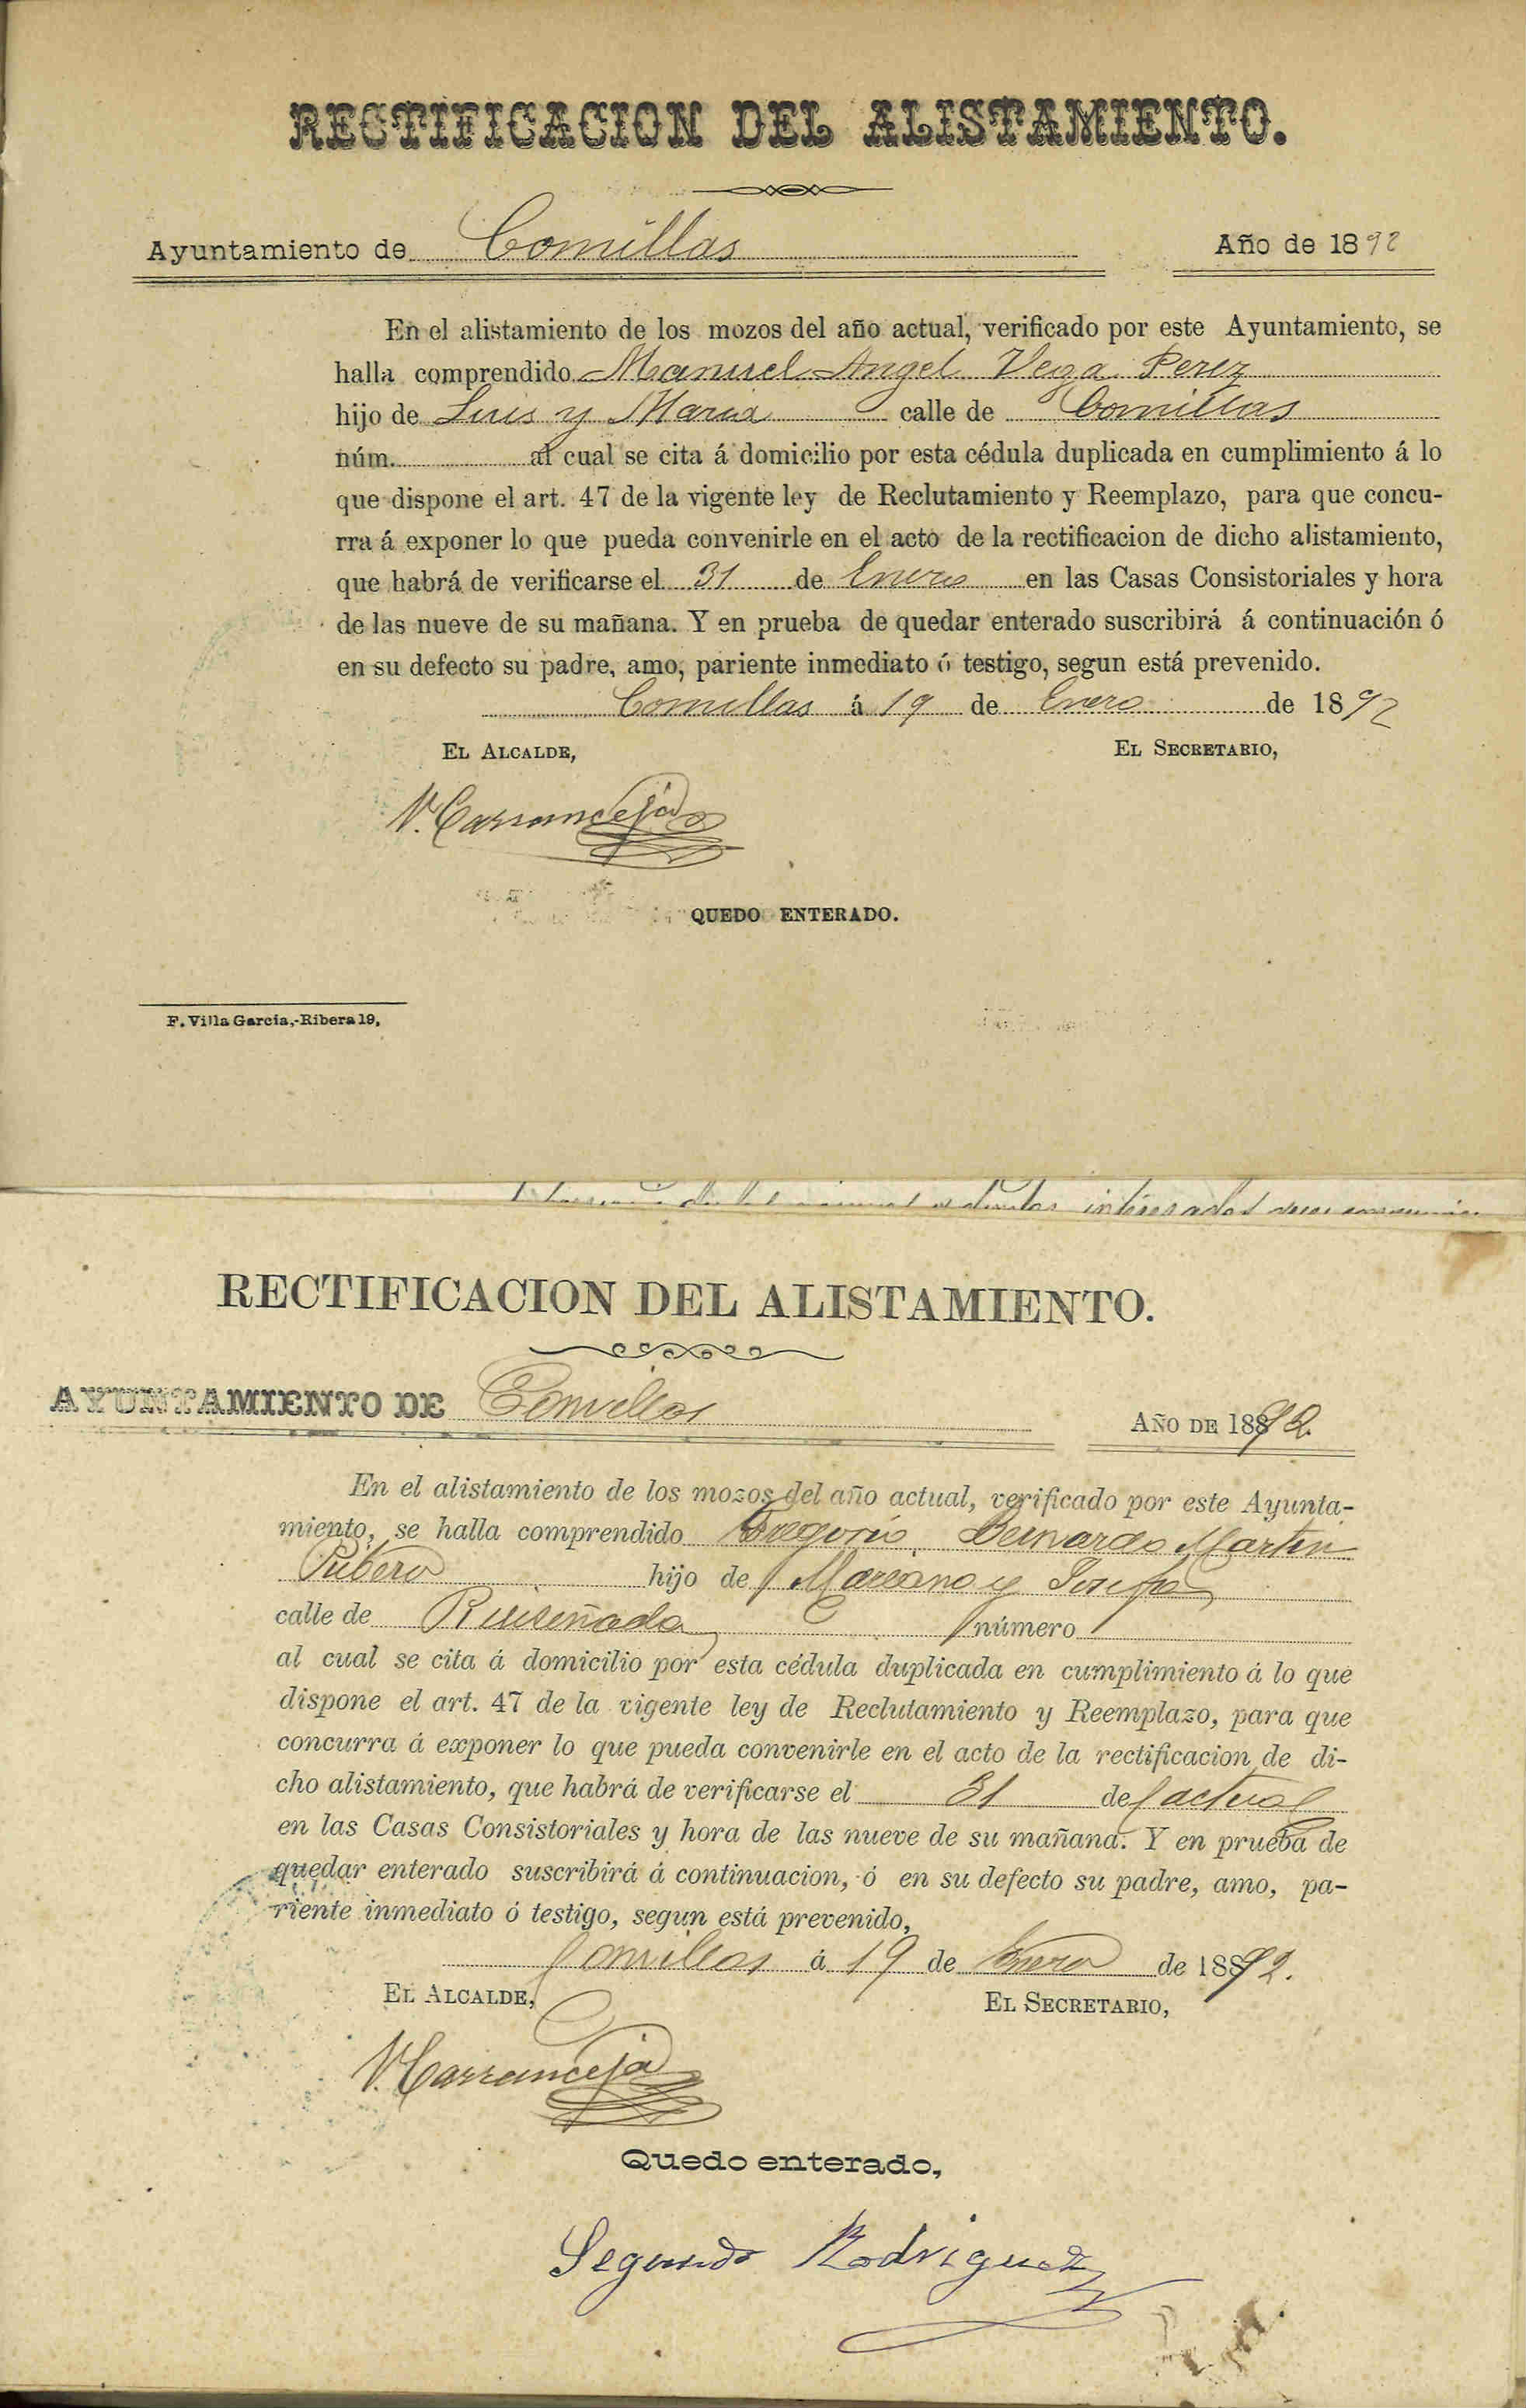 RECTIFICACION DEL ALISTAMIENTO.
Ayuntamiento de Comillas Año de 1892
En el alistamiento de los mozos del año actual, verificado por este Ayuntamiento, se
halla comprendido Manuel Angel Vega Perez
hijo de Luis y Maria calle de Comillas
núm. al cual se cita á domicilio por esta cédula duplicada en cumplimiento á lo
que dispone el art. 47 de la vigente ley de Reclutamiento y Reemplazo, para que concu-
rra á exponer lo que pueda convenirle en el acto de la rectificacion de dicho alistamiento,
que habrá de verificarse el 31 de Enero en las Casas Consistoriales y hora
de las nueve de su mañana. Y en prueba de quedar enterado suscribirá á continuación ó
en su defecto su padre, amo, pariente inmediato ó testigo, segun está prevenido.
Comillas á 19 de Enero de 1892
EL ALCALDE, EL SECRETARIO,
V. Carranceja
QUEDO ENTERADO.
F. Villa García,-Ribera 19,
interesados
RECTIFICACION DEL ALISTAMIENTO.
AYUNTAMIENTO DE Comillas AÑO DE 18892.
En el alistamiento de los mozos del año actual, verificado por este Ayunta-
miento, se halla comprendido Gregorio Bernardo Martin
Ribero hijo de Mariano y Josefa
calle de Ruiseñada número
al cual se cita á domicilio por esta cédula duplicada en cumplimiento á lo que
dispone el art. 47 de la vigente ley de Reclutamiento y Reemplazo, para que
concurra á exponer lo que pueda convenirle en el acto de la rectificacion de di-
cho alistamiento, que habrá de verificarse el 31 del actual
en las Casas Consistoriales y hora de las nueve de su mañana. Y en prueba de
quedar enterado suscribirá á continuacion, ó en su defecto su padre, amo, pa-
riente inmediato ó testigo, segun está prevenido,
Comillas á 19 de Enero de 18892.
EL ALCALDE, EL SECRETARIO,
V. Carranceja
Quedo enterado,
Segundo Rodriguez